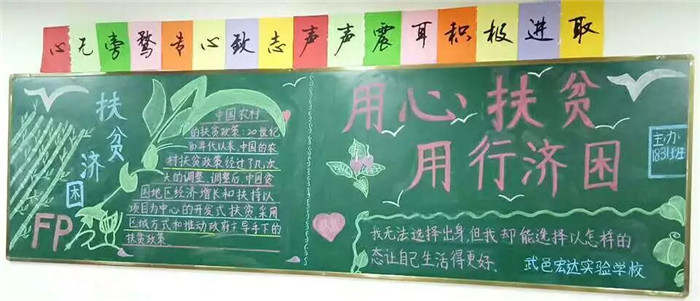 心无旁骛专心致志声声震耳积极进取
扶贫
济困
FP
中国农村
的扶贫政策:20世纪
80年代以来,中国的农
村扶贫政策经过了几次
大的调整。调整后,中国贫
困地区经济增长和扶持以
项目为中心的开发式扶贫,采用
区域方式和推动政府主导手下的
扶贫政策
用心、扶贫
用行济困
主办
1831班
我无法选择出身,但我却能选择以怎样的
态让自己生活得更好。
武邑宏达实验学校